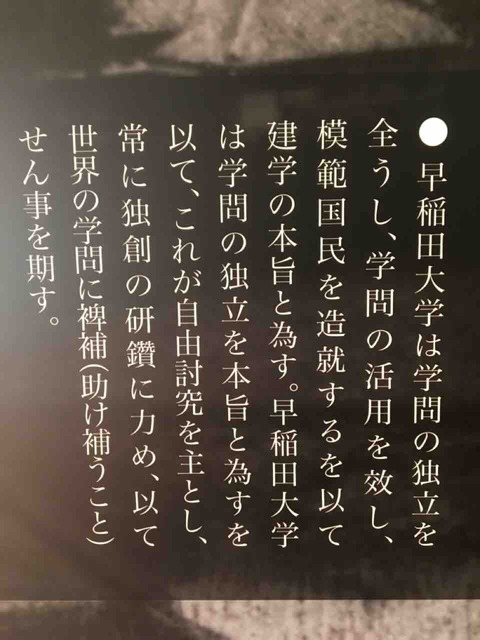 ●早稲田大学は学問の独立を
全うし、学問の活用を效し、
模範国民を造就するを以て
建学の本旨と為す。早稲田大学
は学問の独立を本旨と為すを
以て、これが自由討究を主とし、
常に独創の研鑽に力め、以て
世界の学問に裨補(助け補うこと)
せん事を期す。